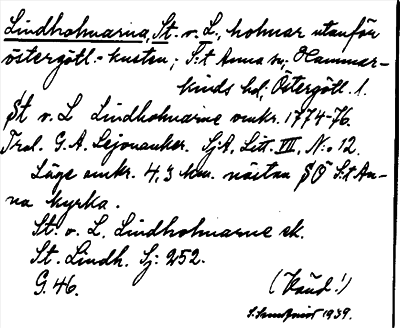 Lindholmarna, St. o. L., holmar utanför
östergötl.-kusten; S:t Anna sn, Hammar-
kinds hd, Östergötl. l.
St o. L Lindholmarne omkr. 1774-76.
Trol. G. A. Lejonanker. SjA, Litt. VII, N:o 12.
Läge omkr. 4,3 km. nästan SÖ S:t An-
na kyrka.
St. o. L. Lindholmarne ek.
St. Lindh. Sj: 252.
G. 46.
1939.